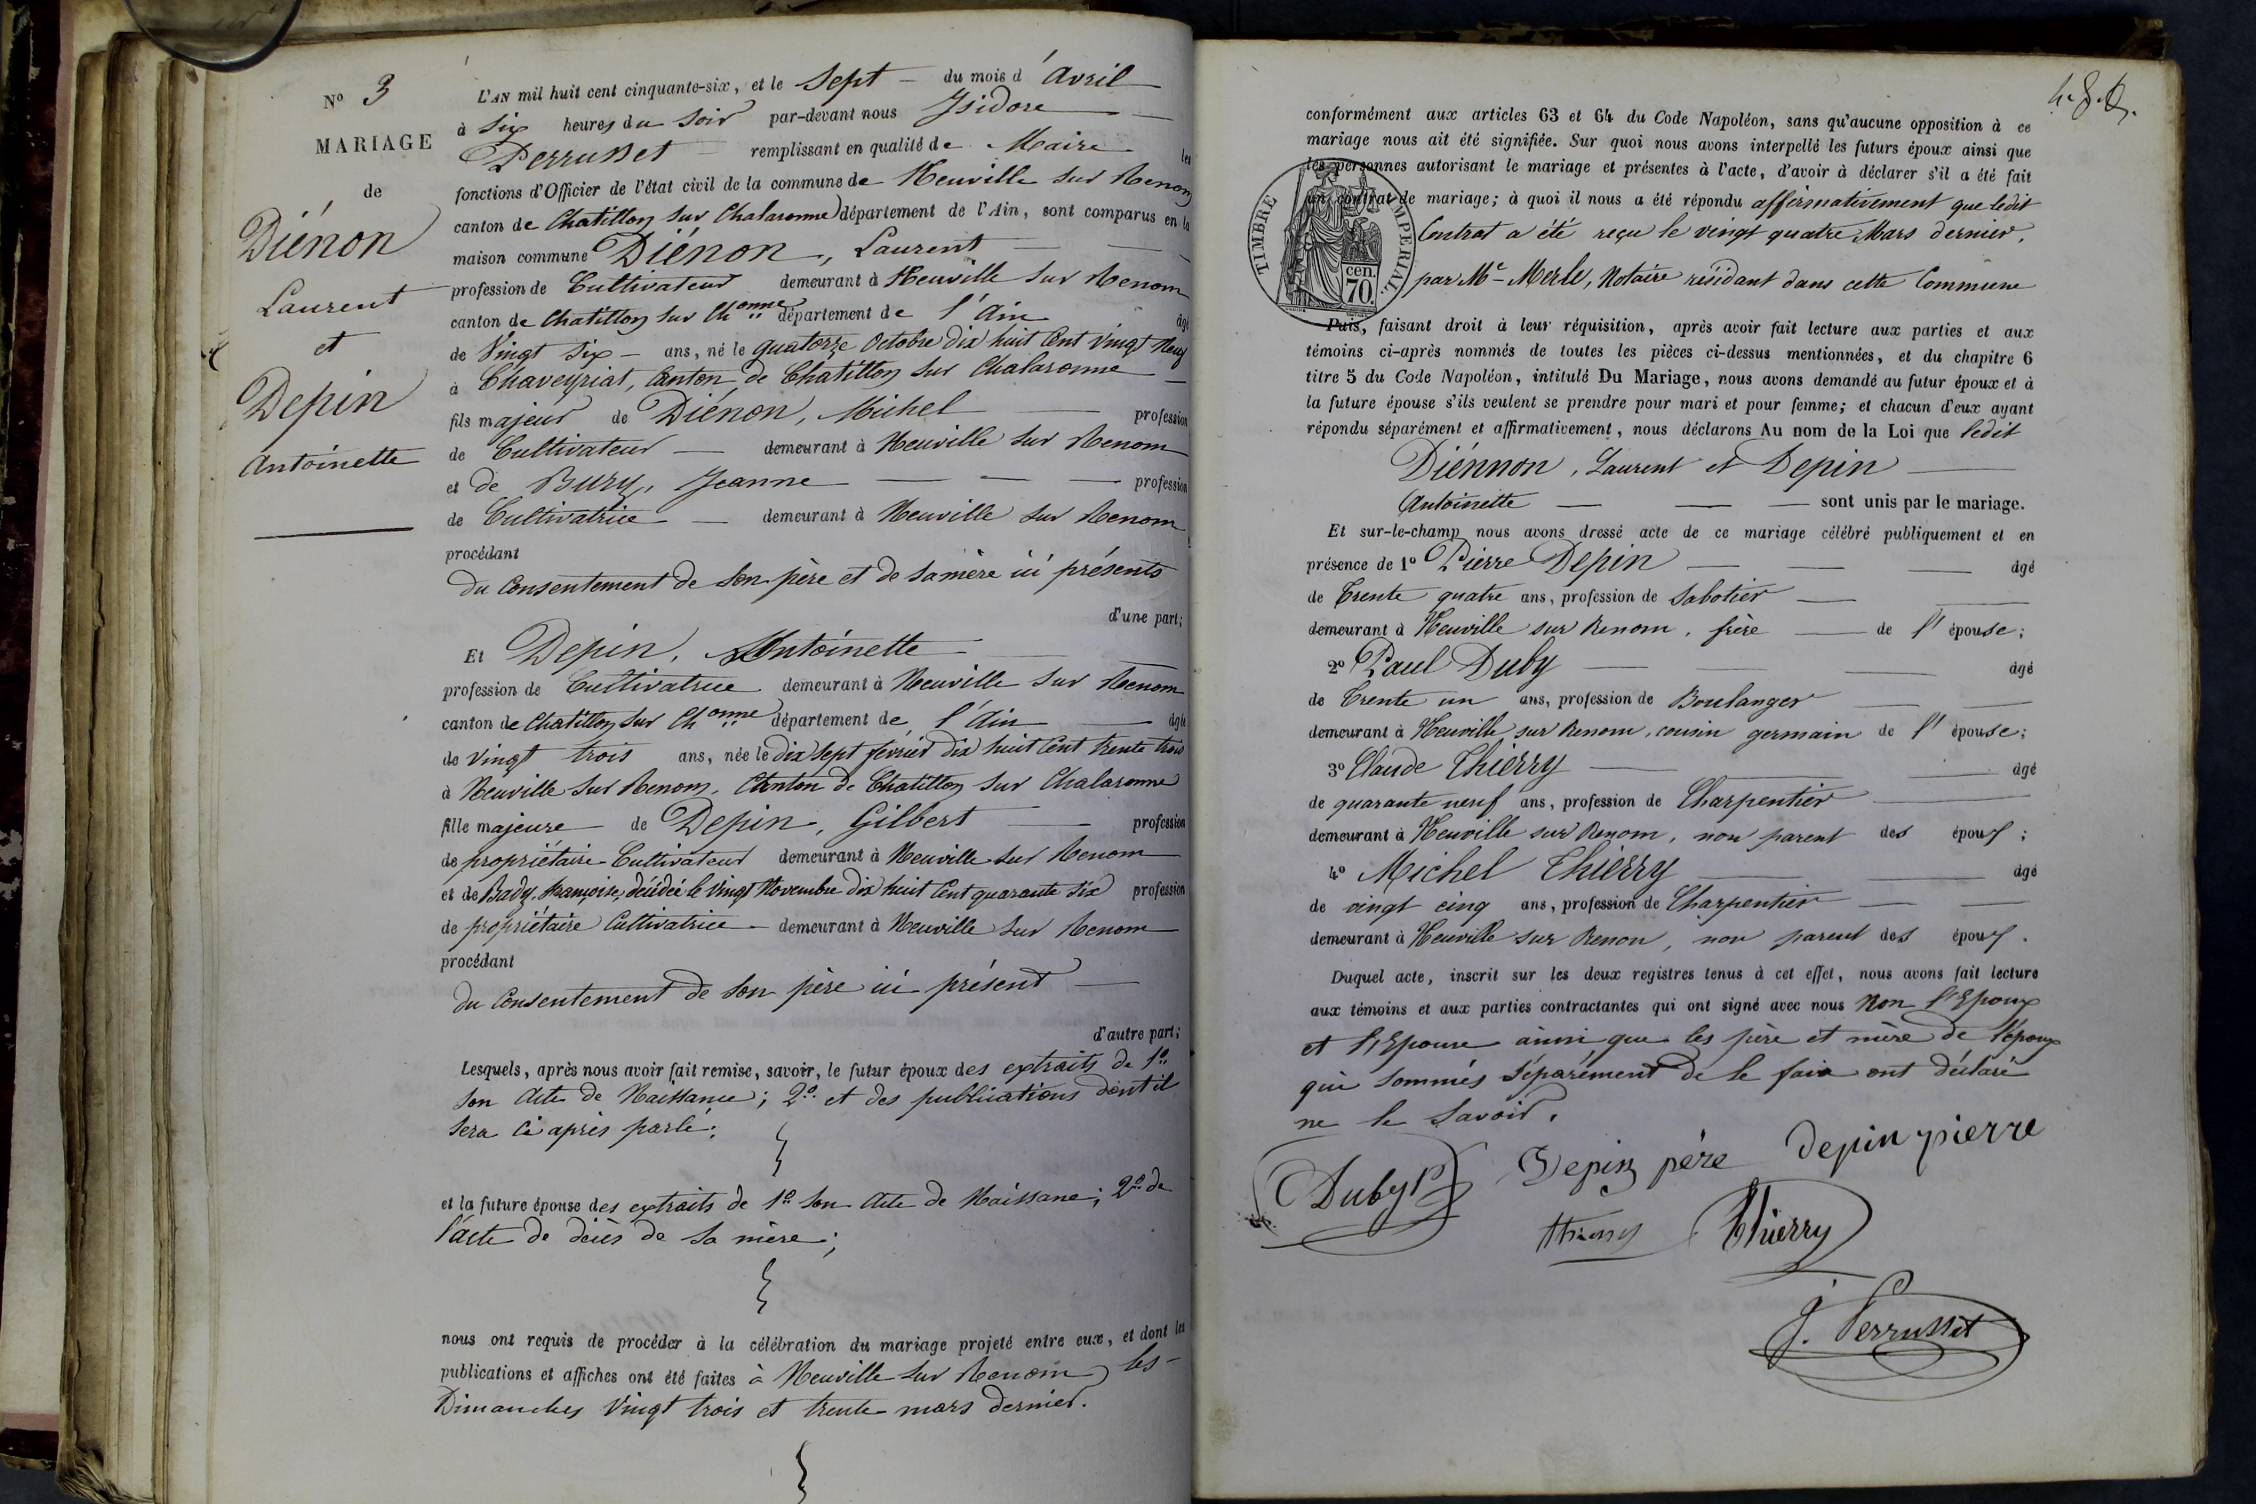 N° 3
MARIAGE
de
Diénon
Laurent
et
Depin
Antoinette
L'AN mil huit cent cinquante-six, et le Sept du mois d'Avril
à Six heures du Soir par-devant nous Isidore
Perrusset remplissant en qualité de Maire les
fonctions d'Officier de l'état civil de la commune de Neuville sur Renom
canton de Chatillon sur Chalaronne département de l'Ain, sont comparus en la
maison commune Diénon, Laurent
profession de Cultivateur demeurant à Neuville sur Renom
canton de Chatillon sur Chonne département de l'Ain âgé
de Vingt Six ans, né le quatorze Octobre dix huit Cent Vingt Neuf
à Chaveyriat, Canton de Chatillon sur Chalaronne
fils majeur de Diénon, Michel profession
de Cultivateur demeurant à Neuville sur Renom
et de Bury, Jeanne profession
de Cultivatrice demeurant à Neuville sur Renom
procédant
du Consentement de Son père et de Sa mère ici présents
d'une part;
Et Depin, Antoinette
profession de Cultivatrice demeurant à Neuville sur Renom
canton de Chatillon sur Chonne département de l'Ain âgée
de Vingt trois ans, née le dix Sept février dix huit Cent trente trois
à Neuville sur Renom, Canton de Chatillon sur Chalaronne
fille majeure de Depin, Gilbert profession
de propriétaire Cultivateur demeurant à Neuville sur Renom
et de Bady, françoise, décédée le Vingt Novembre dix huit Cent quarante Six profession
de propriétaire Cultivatrice demeurant à Neuville sur Renom
procédant
du Consentement de Son père ici présent
d'autre part;
Lesquels, après nous avoir fait remise, savoir, le futur époux des extraits de 1°
Son Acte de Naissance; 2° et des publications dont il
Sera Ci après parlé;
et la future épouse des extraits de 1° Son Acte de Naissance; 2° de
l'Acte de décès de Sa mère;
nous ont requis de procéder à la célébration du mariage projeté entre eux, et dont les
publications et affiches ont été faites à Neuville sur Renom les
Dimanches Vingt trois et trente mars dernier.
conformément aux articles 63 et 64 du Code Napoléon, sans qu'aucune opposition à ce
mariage nous ait été signifiée. Sur quoi nous avons interpellé les futurs époux ainsi que
les personnes autorisant le mariage et présentes à l'acte, d'avoir à déclarer s'il a été fait
un contrat de mariage; à quoi il nous a été répondu affirmativement que ledit
Contrat a été reçu le vingt quatre Mars dernier,
par Me Merle, Notaire résidant dans cette Commune
TIMBRE IMPERIAL.
cen.
70
Puis, faisant droit à leur réquisition, après avoir fait lecture aux parties et aux
témoins ci-après nommés de toutes les pièces ci-dessus mentionnées, et du chapitre 6
titre 5 du Code Napoléon, intitulé Du Mariage, nous avons demandé au futur époux et à
la future épouse s'ils veulent se prendre pour mari et pour femme; et chacun d'eux ayant
répondu séparément et affirmativement, nous déclarons Au nom de la Loi que ledit
Diénnon, Laurent et Depin
Antoinette sont unis par le mariage.
Et sur-le-champ nous avons dressé acte de ce mariage célébré publiquement et en
présence de 1° Pierre Depin âgé
de Trente quatre ans, profession de Sabotier
demeurant à Neuville sur Renom, frère de l'épouse;
2° Paul Duby âgé
de Trente un ans, profession de Boulanger
demeurant à Neuville sur Renom, cousin germain de l'épouse;
3° Claude Thierry âgé
de quarante neuf ans, profession de Charpentier
demeurant à Neuville sur Renom, non parent des époux;
4° Michel Thierry âgé
de vingt cinq ans, profession de Charpentier
demeurant à Neuville sur Renon, non parent des époux.
Duquel acte, inscrit sur les deux registres tenus à cet effet, nous avons fait lecture
aux témoins et aux parties contractantes qui ont signé avec nous Non l'Epoux
et l'Epouse ainsi que les père et mère de l'époux
qui Sommés Séparément de le faire ont déclaré
ne le Savoir.
Duby P Depin père depin pierre
Thierry
J. Perrusset